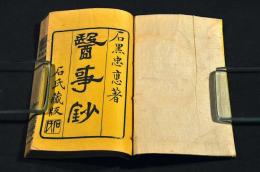 石黒忠悳著
醫事鈔
石氏藏版